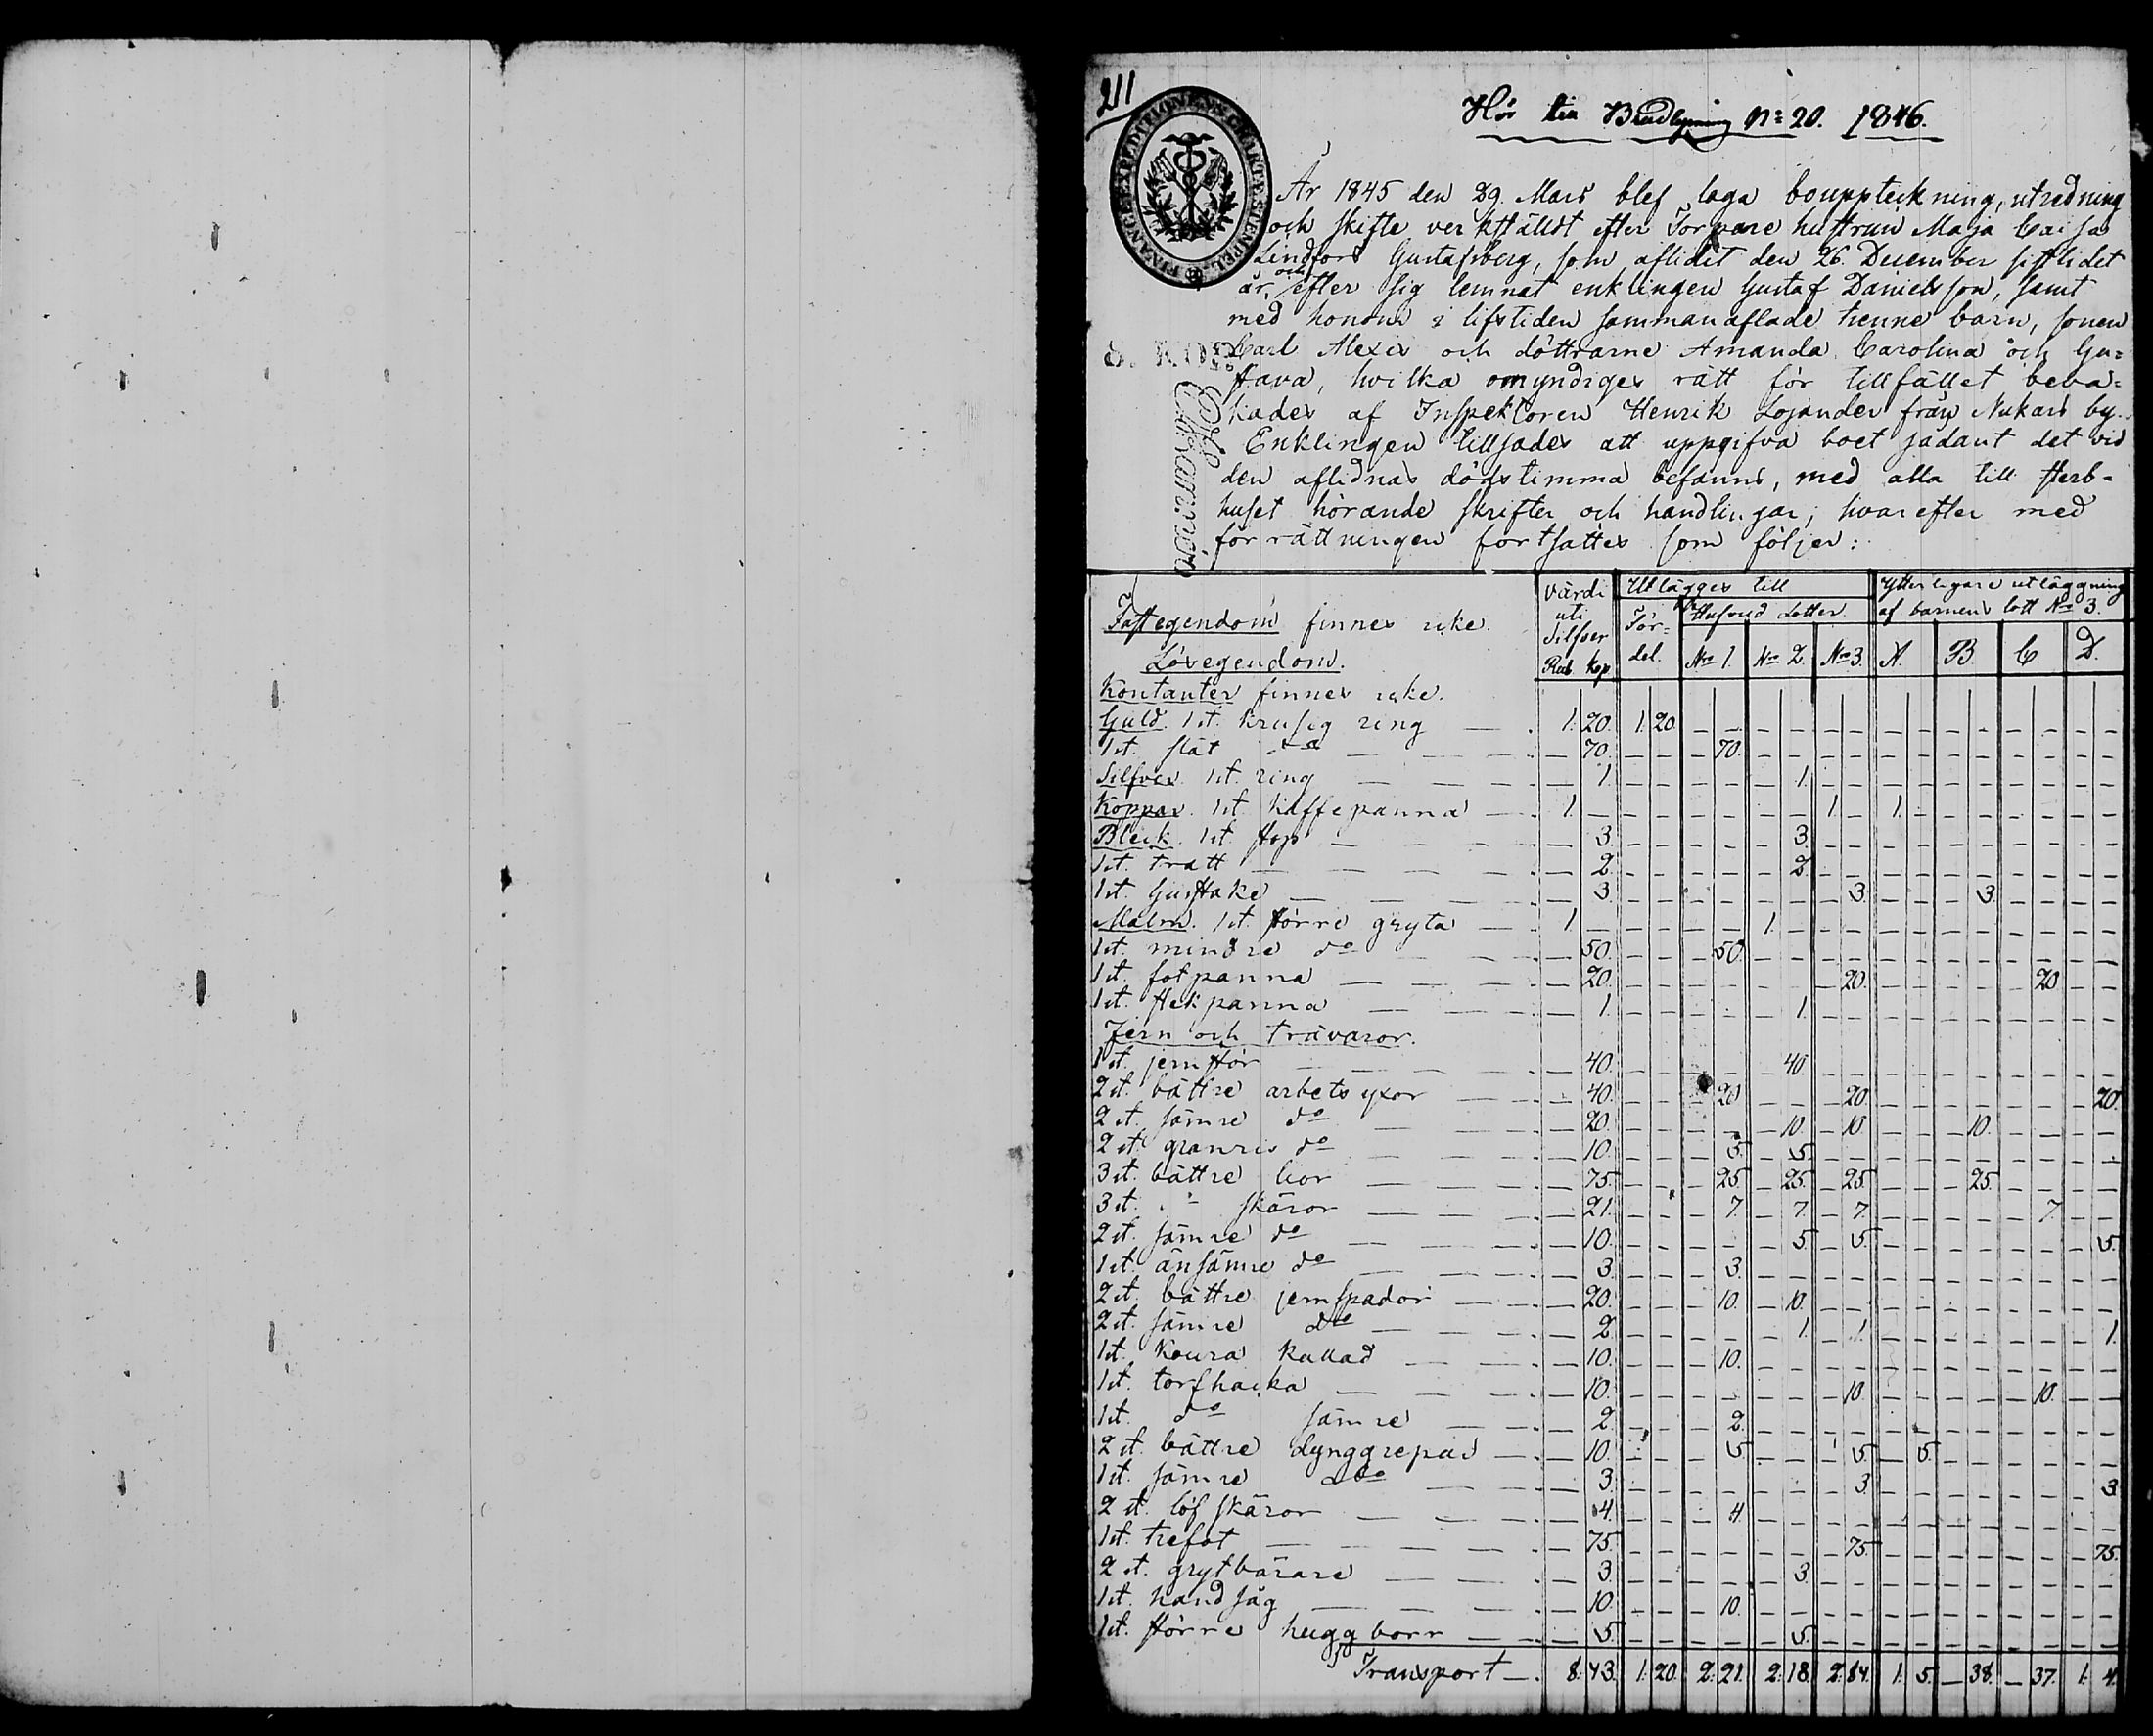 211
FINANCE EXPEDITIONENS CHARTÆ STEMPEL
Hör till N:o 20. 1846.
År 1845 den 29. Mars blef laga bouppteckning, utredning
och skifte verkställdt efter Torpare hustrun Maja Caisa
Lindfors Gustafsberg, som aflidit den 26. December sistlidet
år, och efter sig lemnat enklingen Gustaf Danielsson, samt
med honom i lifstiden sammanaflade trenne barn, sonen
Carl Alexis och döttrarne Amanda Carolina och Gu=
stava, hvilka omyndiges rätt för tillfället beva=
kades af Inspektoren Henrik Lojander från Nukari by.
Enklingen tillsades att uppgifva boet sådant det vid
den aflidnas dödstimma befanns, med alla till sterb=
huset hörande skrifter och handlingar; hvarefter med
förrättningen fortsattes som följer:
8. KOP.
Fastegendom finnes icke.
Lösegendom.
Värde uti Silfver Rub. kop.
Utlägges till
Fördel.
Hufvud Lotter.
Nro 1. Nro 2. Nro 3.
Ytterligare utläggning af barnens lott Nro 3.
A. B. C. D.
Kontanter finnes icke.
Guld. 1 st. krusig ring 1. 20. 1. 20.
1 st. slät do 70. 70.
Silfver. 1 st. ring 1. 1.
Koppar. 1 st. kaffepanna 1. 1. 1.
Bleck. 1 st. stop 3. 3.
1 st. tratt 2. 2.
1 st. ljusstake 3. 3. 3.
Malm. 1 st. större gryta 1. 1.
1 st. mindre do 50. 50.
1 st. fotpanna 20. 20. 20
1 st. stekpanna 1. 1.
Jern och trävaror.
1 st. jernstör 40. 40.
2 st. bättre arbets yxor 40. 20 20. 20.
2 st. sämre do 20. 10. 10. 10.
2 st. granris do 10. 5. 5.
3 st. bättre liar 75. 25. 25. 25. 25.
3 st. " skäror 21. 7. 7. 7. 7.
2 st. sämre do 10. 5. 5. 5.
1 st. änsämre do 3. 3.
2 st. bättre jernspador 20. 10. 10.
2 st. sämre do 2. 1. 1. 1.
1 st. Koura 10. 10.
1 st. torfhacka 10. 10. 10.
1 st. do sämre 2. 2.
2 st. bättre dynggrepar 10. 5. 5. 5.
1 st. sämre do 3. 3. 3.
2 st. löfskäror 4. 4.
1 st. trefot 75. 75. 75.
2 st. grytbärare 3. 3.
1 st. handsåg 10. 10.
1 st. större huggborr 5. 5.
Transport 8. 43. 1. 20. 2. 21. 2. 18. 2. 84. 1. 5. 38. 37. 1. 4.